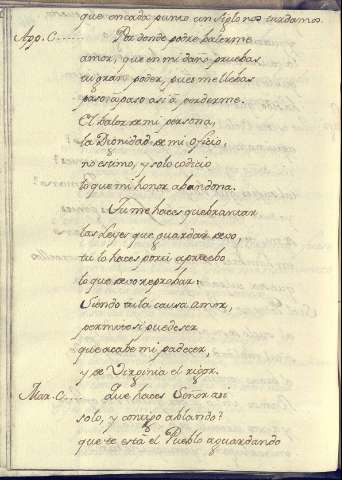 que en cada punto un siglo nos tardamos.
Apo. C...... Por donde podre balerme
amor, que en mi dano pruebas
tu gran poder, pues me llebas
paso a paso asi a perderme.
El balor de mi persona,
la Dignidad de mi oficio,
no estimo, y solo codicio
lo que mi honor abandona.
Tu me haces quebrantar
las Leyes que guardar devo,
tu lo haces por mi apruebo
lo que devo reprobar:
Siendo tu la causa amor,
permite si puede ser
que acabe mi padecer,
y de Virginia el rigor.
Mar. C..... Que haces Señor asi
solo, y contigo ablando?
que te está el Pueblo aguardando